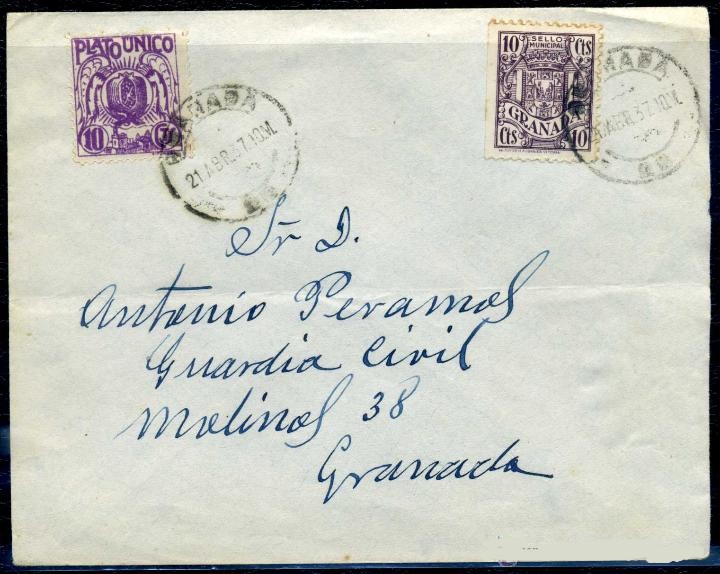 PLATO ÚNICO
10
GRANADA
21 ABR.37.10M.
10 Cts
SELLO
MUNICIPAL
GRANADA
Cts 10
ABR.37.10M.
Sr D.
Antonio Peramos
Guardia Civil
Molinos 38
Granada